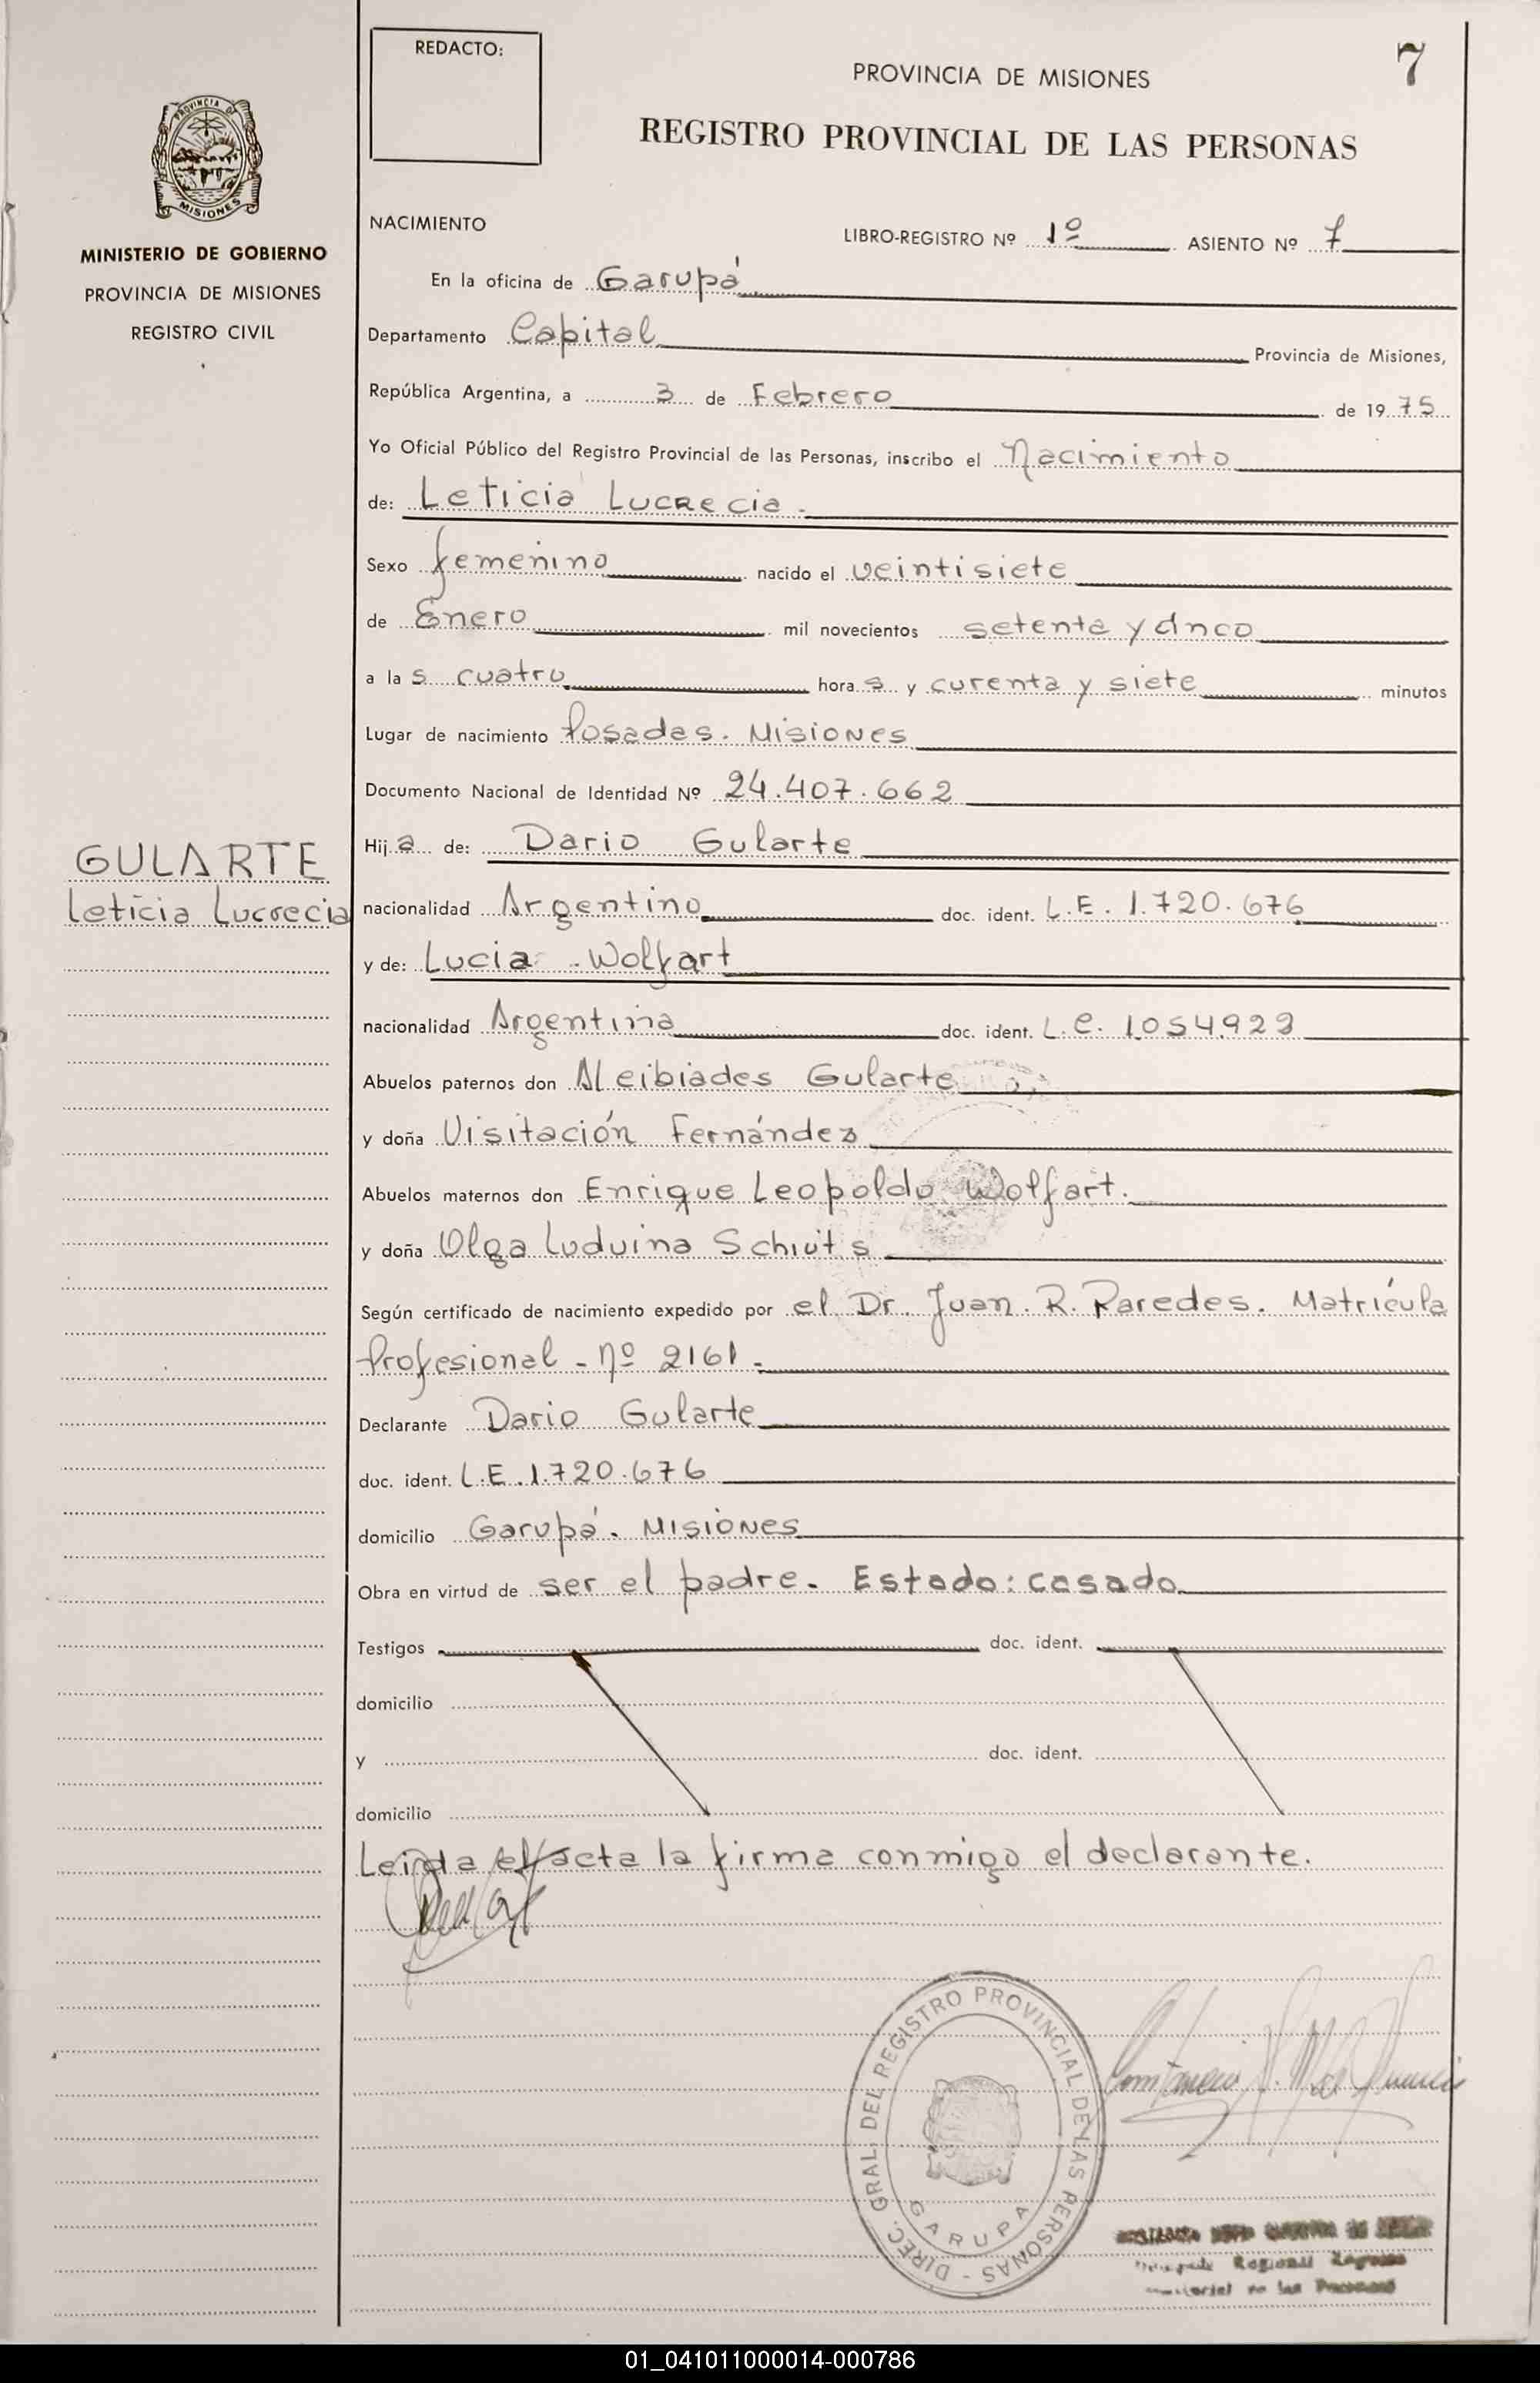 REDACTO:
7
PROVINCIA DE MISIONES
REGISTRO PROVINCIAL DE LAS PERSONAS
PROVINCIA DE
MISIONES
MINISTERIO DE GOBIERNO
PROVINCIA DE MISIONES
REGISTRO CIVIL
NACIMIENTO
LIBRO-REGISTRO Nº 1º ASIENTO Nº 7
En la oficina de Garupá
Departamento Capital Provincia de Misiones,
República Argentina, a 3 de Febrero de 1975
Yo Oficial Público del Registro Provincial de las Personas, inscribo el Nacimiento
de: Leticia Lucrecia.
Sexo femenino nacido el veintisiete
de Enero mil novecientos setenta y cinco
a las cuatro horas y curenta y siete minutos
Lugar de nacimiento Posadas. Misiones
Documento Nacional de Identidad Nº 24.407.662
Hija de: Dario Gularte
GULARTE
Leticia Lucrecia
nacionalidad Argentino doc. ident. L.E. 1.720.676
y de: Lucia Wolfart
nacionalidad Argentina doc. ident. L.C. 1.054.923
Abuelos paternos don Aleibiades Gularte
y doña Visitación Fernández
Abuelos maternos don Enrique Leopoldo Wolfart.
y doña Olga Luduina Schiuts
Según certificado de nacimiento expedido por el Dr. Juan. R. Paredes. Matrícula
Profesional - Nº 2161.
Declarante Dario Gularte
doc. ident. L.E. 1.720.676
domicilio Garupá. Misiones
Obra en virtud de ser el padre. Estado: casado
Testigos doc. ident.
domicilio
y doc. ident.
domicilio
Leida el acta la firma conmigo el declarante.
DIREC. GRAL. DEL REGISTRO PROVINCIAL DE LAS PERSONAS -
GARUPA
Regional
de las Personas
01_041011000014-000786